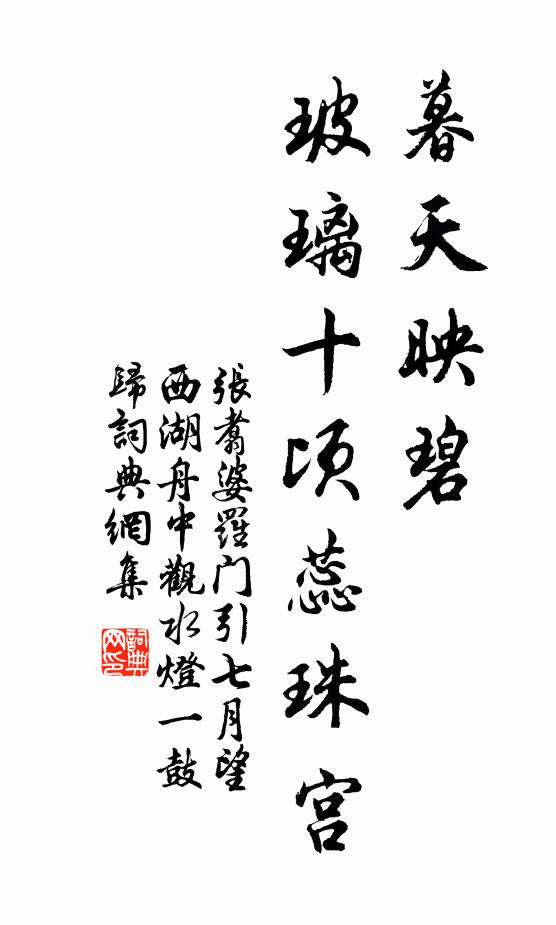 暮天映碧
玻璃十頃蕊珠宮
張翥婆羅門引七月望
西湖舟中觀水燈一鼓
歸詞典網集
詞典網印